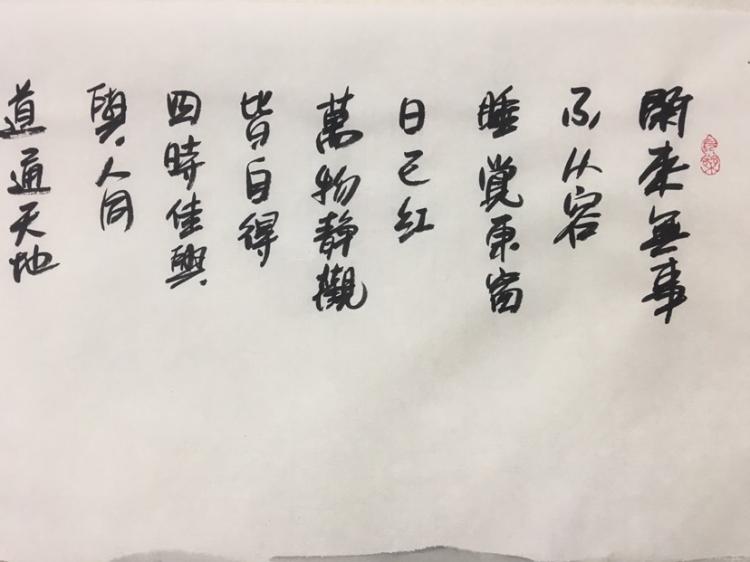 閑來無事
不从容
睡覺東窗
日已红
萬物静觀
皆自得
四時佳興
與人同
道通天地